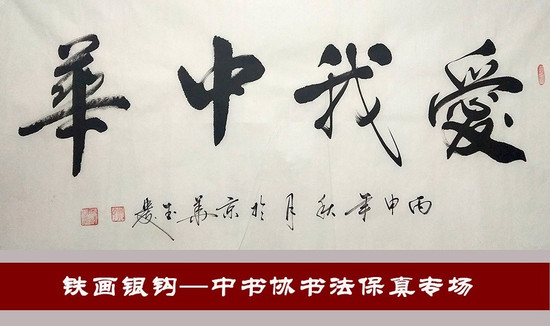 愛我中華
丙申年秋月於京華
铁画银钩—中书协书法保真专场